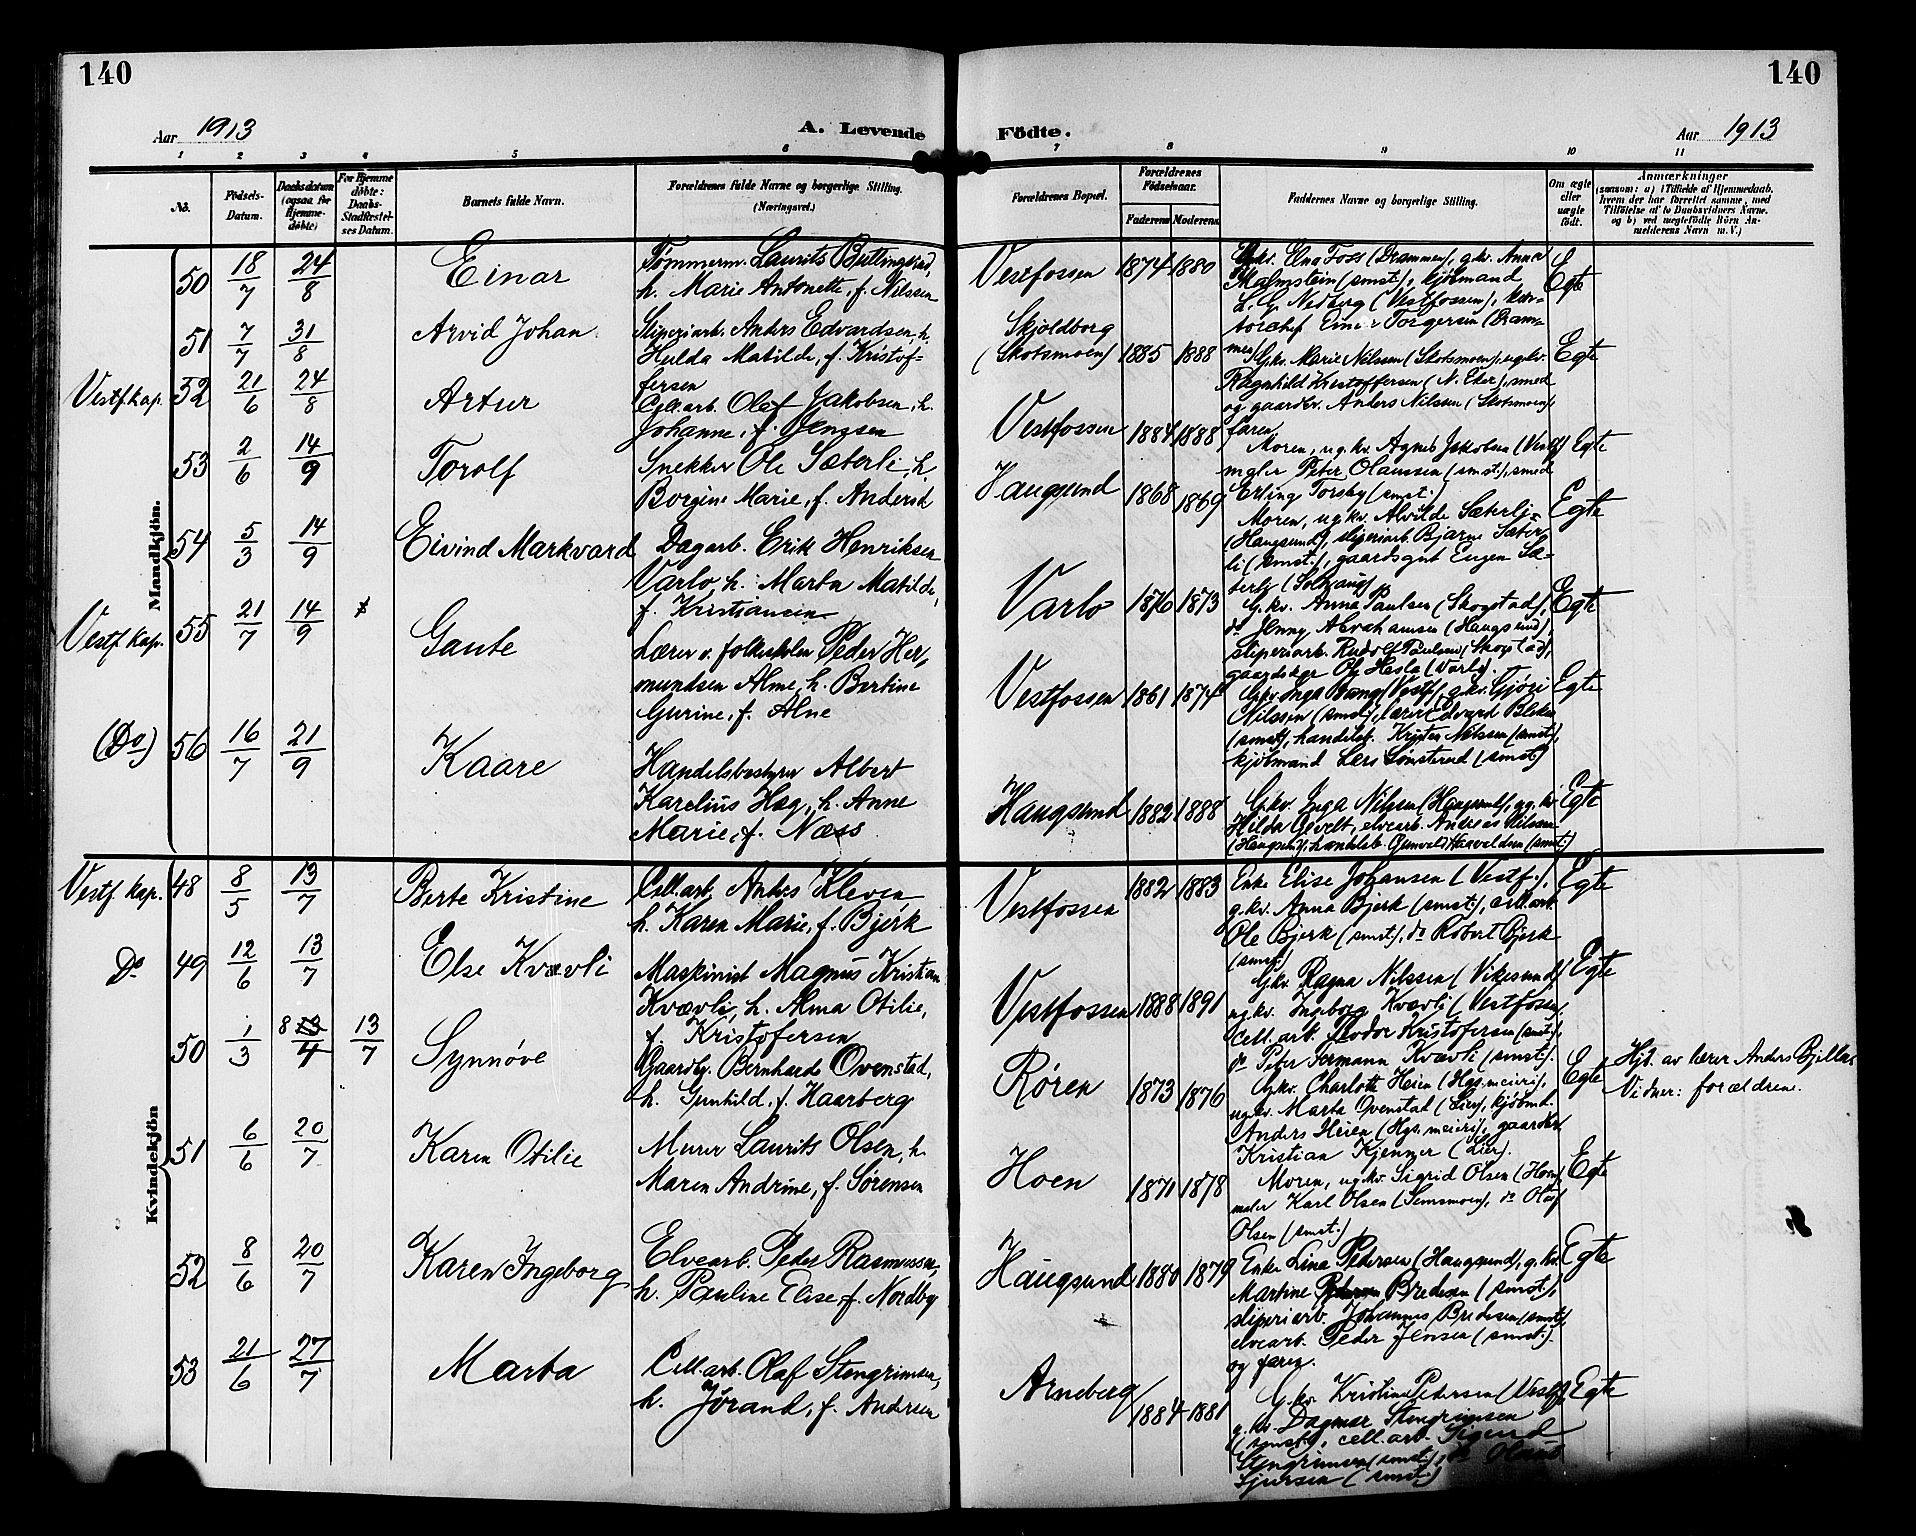 140
140
Aar 1913
A. Levende
Födte.
Aar 1913
1 2 3 4 5 6 7 8 9 10 11
No.
Födsels-Datum.
Daabsdatum (ogsaa for Hjemme-döbte)
For Hjemme döbte: Daabs-Stadfæstel-ses Datum.
Barnets fulde Navn.
Forældrenes fulde Navne og borgerlige Stilling. (Næringsvei.)
Forældrenes Bopæl.
Forældrenes Födselsaar.
Faderens Moderens
Faddernes Navne og borgerlige Stilling.
Om ægte eller uægte födt.
Anmærkninger
(saasom: a) i Tilfælde af Hjemmedaab, hvem der har forrettet samme, med Tilföielse af to Daabsvidners Navne. b) ved uegtefödte Börn Anmelderens Navn m. V.)
Mandkjön.
50 18/7 24/8 Einar
Tømmerm. Laurits
h. Marie Antonette, f. Nilssen
Vestfossen 1874 1880
Gkv. Elna Foss (Drammen), gkv. Anna
Malmstein (smst.), kjøbmand
L. G. Nedberg (Vestfossen), kon-
torchef Einar Torgersen (Dram-
men)
Egte
51 7/7 31/8 Arvid Johan.
Sliperiarb. Anders Edvardsen, h.
Hulda Matilde, f. Kristof-
fersen
Skjoldborg
(Skotsmoen) 1885 1888
Gkv. Marie Nilssen (Skotsmoen), ugkv.
Ragnhild Kristoffersen (N. Eker), smed
og gaardbr. Anders Nilssen (Skotsmoen),
faren.
Egte
Vestf. kap. 52 21/6 24/8 Artur
Cell.arb. Olaf Jakobsen, h.
Johanne, f. Jenssen
Vestfossen 1884 1888
Moren, ugkv. Agnes Jakobsen (Vestf.)
maler Peter Olaussen (smst.), smed
Erling Torsby (smst.)
Egte
53 2/6 14/9 Torolf
Snekker Ole Sæterli, h.
Borgine Marie, f. Anders
Haugsund 1868 1869
Moren, ugkv. Alvilde Sæterli
(Haugsund), sliperiarb. Bjarne Sæter-
li (smst.), gaardsgut Eugen Sæ-
terli (Solhaug)
Egte
54 5/3 14/9 Eivind Markvard
Dagarb. Erik Henriksen
Varlo, h. Marta Matilde,
f. Kristiansen
Varlo 1876 1873
Gkv. Anna Paulsen (Skogstad),
do Jenny Abrahamsen (Haugsund),
sliperiarb. Rudolf Paulsen (Skogstad),
Ole Hasla (Varlo).
Egte
Vestf. kap. 55 21/7 14/9 Gaute
Lærer v. folkeskolen Peder Her-
mundsen Alme, h. Bertine
Gurine, f. Alne
Vestfossen 1861 1874
Gkv. Inga Bang (Vestf.), gkv. Gjøri
Nilssen (smst.), lærer Edvard
(smst), handelsb. Nilssen (smst.),
kjøbmand Lars Sønsterud (smst)
Egte
(Do) 56 16/7 21/9 Kaare
Handelsbestyrer Albert
Karelius Hæg, h. Anne
Marie, f. Næss
Haugsund 1882 1888
Gkv. Inga Nilssen (Haugsund), ug. kv.
Hilda Gevelt, elvearb. Andreas Nilssen
(Haugsund), handelsb. Gunvald Haavaldsen (smst.)
Egte
Kvindekjön
Vestf. kap. 48 8/5 13/7 Berte Kristine
Cell.arb. Anders Kleven
h. Karen Marie, f. Bjerk
Vestfossen 1882 1883
Enke Elise Johansen (Vestf.),
g.kv. Anna Bjerk (smst.), cell.arb.
Ole Bjerk (smst.), do Robert Bjerk
(smst)
Egte
Do 49 12/6 13/7 Else Kvævli
Maskinist Magnus Kristian
Kvævli, h. Alma Otilie,
f. Kristofersen
Vestfossen 1888 1891
Gkv. Ragna Nilssen (Vikesund)
ugkv. Ingeborg Kvævli (Vestfossen),
cell. arb. Teodor Kristofersen (smst.),
do Peter Hermann Kvævli (smst.).
Egte
50 1/3 8/4 13/7 Synnøve
Gaardbr. Bernhard Ovenstad,
h. Gunhild, f. Haarberg
Røren 1873 1876
Gkv. Charlotte Heien (Hgs. meieri),
ugkv. Marta Ovenstad (Lier), kjøbmd.
Anders Heien (Hgs. meieri), gaardbr.
Kristian Kjenner (Lier).
Egte
Hjd. av lærer Anders
Vidner: forældrene.
51 6/6 20/7 Karen Otilie
Murer Laurits Olsen, h.
Maren Andrine, f. Sørensen
Hoen 1871 1878
Moren, ugkv. Sigrid Olsen (Hoen)
maler Karl Olsen (Semsmoen), do Olaf
Olsen (smst.)
Egte
52 8/6 20/7 Karen Ingeborg
Elvearb. Peder Rasmussen,
h. Pauline Elise, f. Nordby
Haugsund 1880 1879
Enke Lina Pedersen (Haugsund), g.kv.
Martine Bredesen (smst.),
sliperiarb. Johannes Bredesen (smst)
elvearb. Peder Jensen (smst.)
og faren.
Egte
53 21/6 27/7 Marta
Cell.arb. Olaf Stengrimsen,
h. Jørand, f. Andersen
Arneberg 1884 1881
G.kv. Kristine Pedersen (Vestf.)
g.kv. Dagmar Stengrimsen
(smst.), cell.arb. Sigurd
Stengrimsen (smst.), do
Sjursen (smst.)
Egte